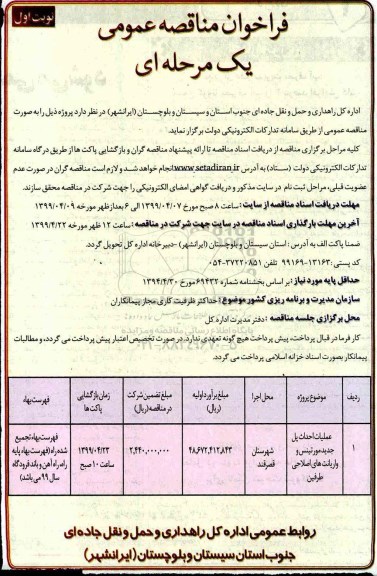 نوبت اول
فراخوان مناقصه عمومی
یک مرحله ای
اداره کل راهداری و حمل و نقل جاده ای جنوب استان و سیستان و بلوچستان (ایرانشهر) در نظر دارد پروژه ذیل را به صورت
مناقصه عمومی از طریق سامانه تدارکات الکترونیکی دولت برگزار نماید.
کلیه مراحل برگزاری مناقصه از دریافت اسناد مناقصه تا ارائه پیشنهاد مناقصه گران و بازگشایی پاکت ها از طریق درگاه سامانه
تدارکات الکترونیکی دولت (ستاد) به آدرس www.setadiran.ir انجام خواهد شد و لازم است مناقصه گران در صورت عدم
عضویت قبلی، مراحل ثبت نام در سایت مذکور و دریافت گواهی امضای الکترونیکی را جهت شرکت در مناقصه محقق سازند.
مهلت دریافت اسناد مناقصه از سایت: ساعت ۸ صبح مورخ ۱۳۹۹/۰۴/۰۷ الی ۶ بعدازظهر مورخه ۱۳۹۹/۰۴/۰۹
آخرین مهلت بارگذاری اسناد مناقصه در سایت جهت شرکت در مناقصه: ساعت ۱۲ ظهر مورخه ۱۳۹۹/۴/۲۲
ضمنا پاکت الف به آدرس: استان سیستان و بلوچستان (ایرانشهر) -دبیرخانه اداره کل تحویل گردد.
کد پستی: ۱۳۱۶۳-۹۹۱۶۹ تلفن ۳۷۲۲۰۸۵۱-۰۵۴
حداقل پایه مورد نیاز: بر اساس بخشنامه شماره ۶۹۴۳۲ مورخ ۱۳۹۴/۴/۳۰
سازمان مدیریت و برنامه ریزی کشور موضوع: حداکثر ظرفیت کاری مجاز پیمانکاران
محل برگزاری جلسه مناقصه: دفتر مدیریت اداره کل
کارفرما در قبال پرداخت، پیش پرداخت هیچ گونه تعهدی ندارد. در صورت تخصیص اعتبار پیش پرداخت می گردد، و مطالبات
پیمانکار بصورت اسناد خزانه اسلامی پرداخت می گردد.
ردیف موضوع پروژه محل اجرا مبلغ برآورد اولیه (ریال) مبلغ تضمین شرکت در مناقصه (ریال) زمان بازگشایی پاکت ها فهرست بهاء
۱ عملیات احداث پل جدید مورتینس و واریانت های اصلاحی طرفین شهرستان قصرقند ۴۸,۶۷۲,۴۱۲,۸۴۳ ۲,۴۴۰,۰۰۰,۰۰۰ ۱۳۹۹/۰۴/۲۳ ساعت ۱۰ صبح فهرست بهاء تجمیع شده راه (فهرست بهاء پایه راه، راه آهن و باند فرودگاه سال ۹۹ می باشد)
روابط عمومی اداره کل راهداری و حمل و نقل جاده ای
جنوب استان سیستان و بلوچستان (ایرانشهر)